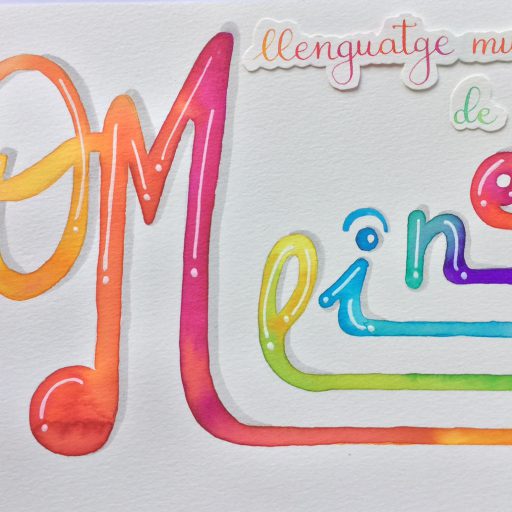 llenguatge mu
de
OM lin